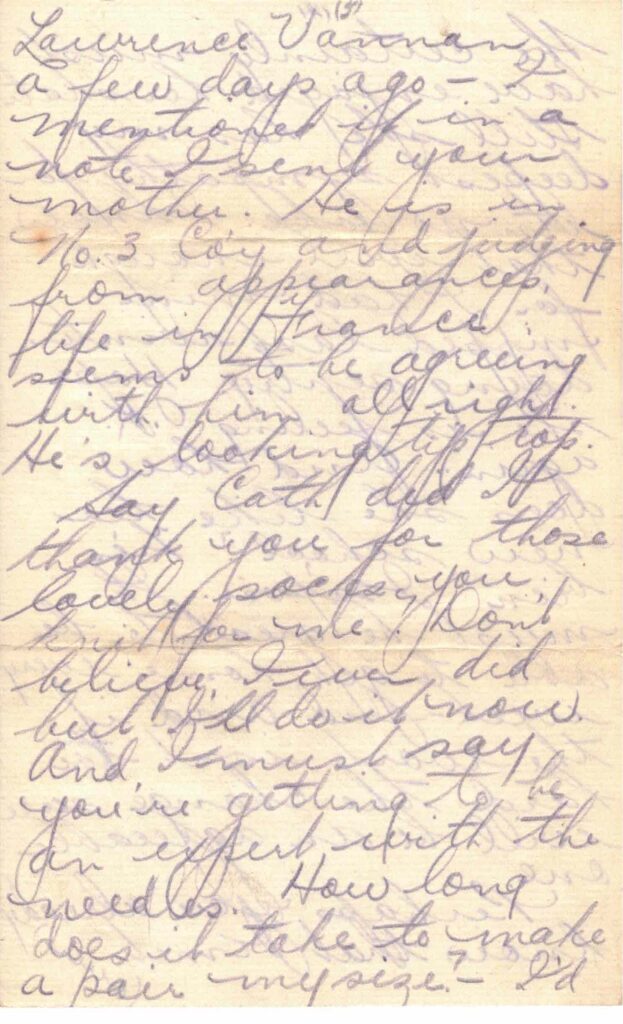 (5)
Lawrence Vannan
a few days ago - I
mentioned it in a
note I sent your
mother. He is in
No. 3 Co'y and judging
from appearances,
life in France
seems to be agreeing
with him all right.
He's looking tip top.
Say Cath did I
thank you for those
lovely socks you
knit for me? Don't
believe I ever did
but I'll do it now.
And I must say
you're getting to be
an expert with the
needles. How long
does it take to make
a pair my size? - I'd